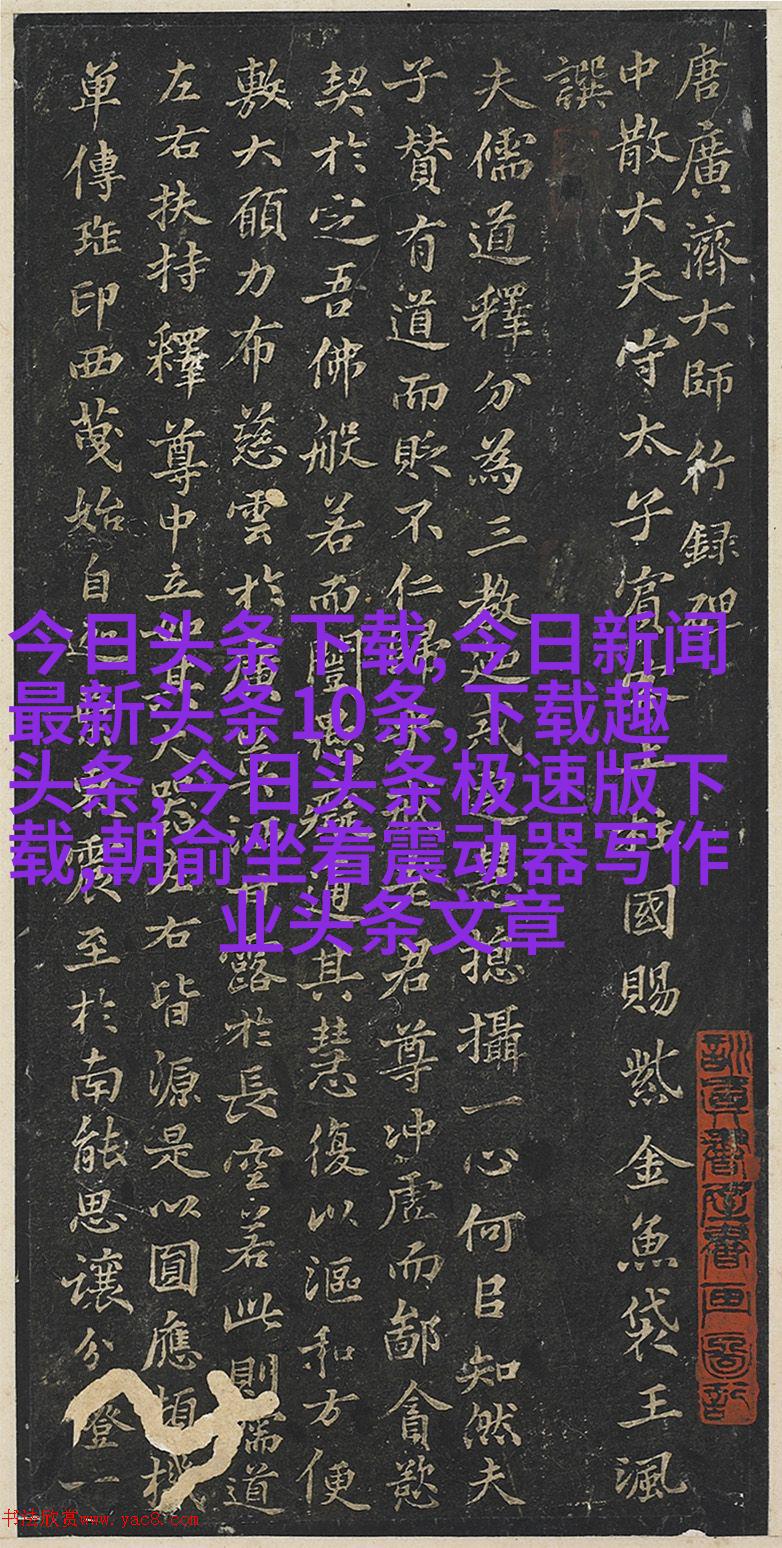 唐廣濟大師行録碑
中散大夫守太子賓國賜紫金魚袋王渢
譔
夫儒道釋分為三教揔攝一心何目知然夫
子賛有道而貶不仁君尊冲虛而鄙貪慾
契於空吾佛般若而闓道其慧復以漚和方便
敷大願力布慈雲於廣露於長空若此則儒道
左右扶持釋尊中立右皆源是以圓應頓機
單傳班印西蔑始自震至於南能思讓分燈一
今日头条下载,今日新闻
最新头条10条,下载趣
头条,今日头条极速版下
载,朝俞坐着震动器写作
业头条文章
书法欣赏www.yac8.com